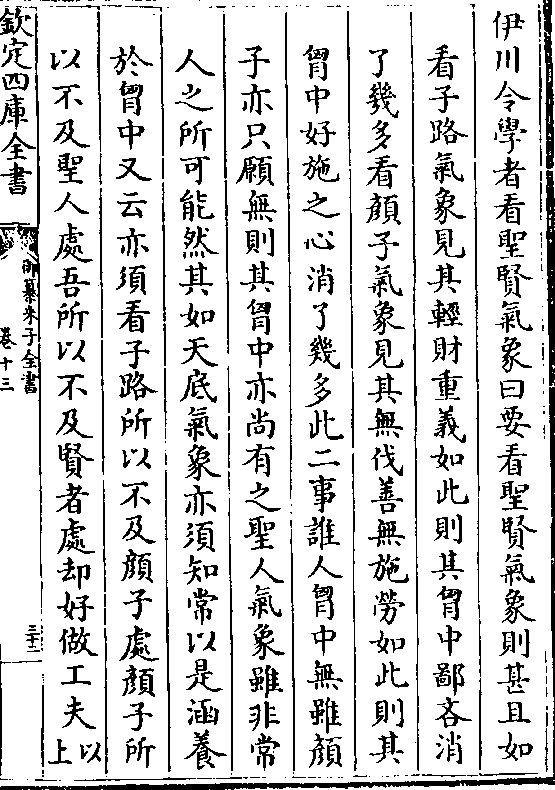 伊川令學者看聖賢氣象曰要看聖賢氣象則甚且如
看子路氣象見其輕財重義如此則其胷中鄙吝消
了幾多看顏子氣象見其無伐善無施勞如此則其
胷中好施之心消了幾多此二事誰人胷中無雖顏
子亦只願無則其胷中亦尚有之聖人氣象雖非常
人之所可能然其如天底氣象亦須知常以是涵養
於胷中又云亦須看子路所以不及顏子處顏子所
以不及聖人處吾所以不及賢者處却好做工夫以上
欽定四庫全書
御纂朱子全書
卷十三
三十二